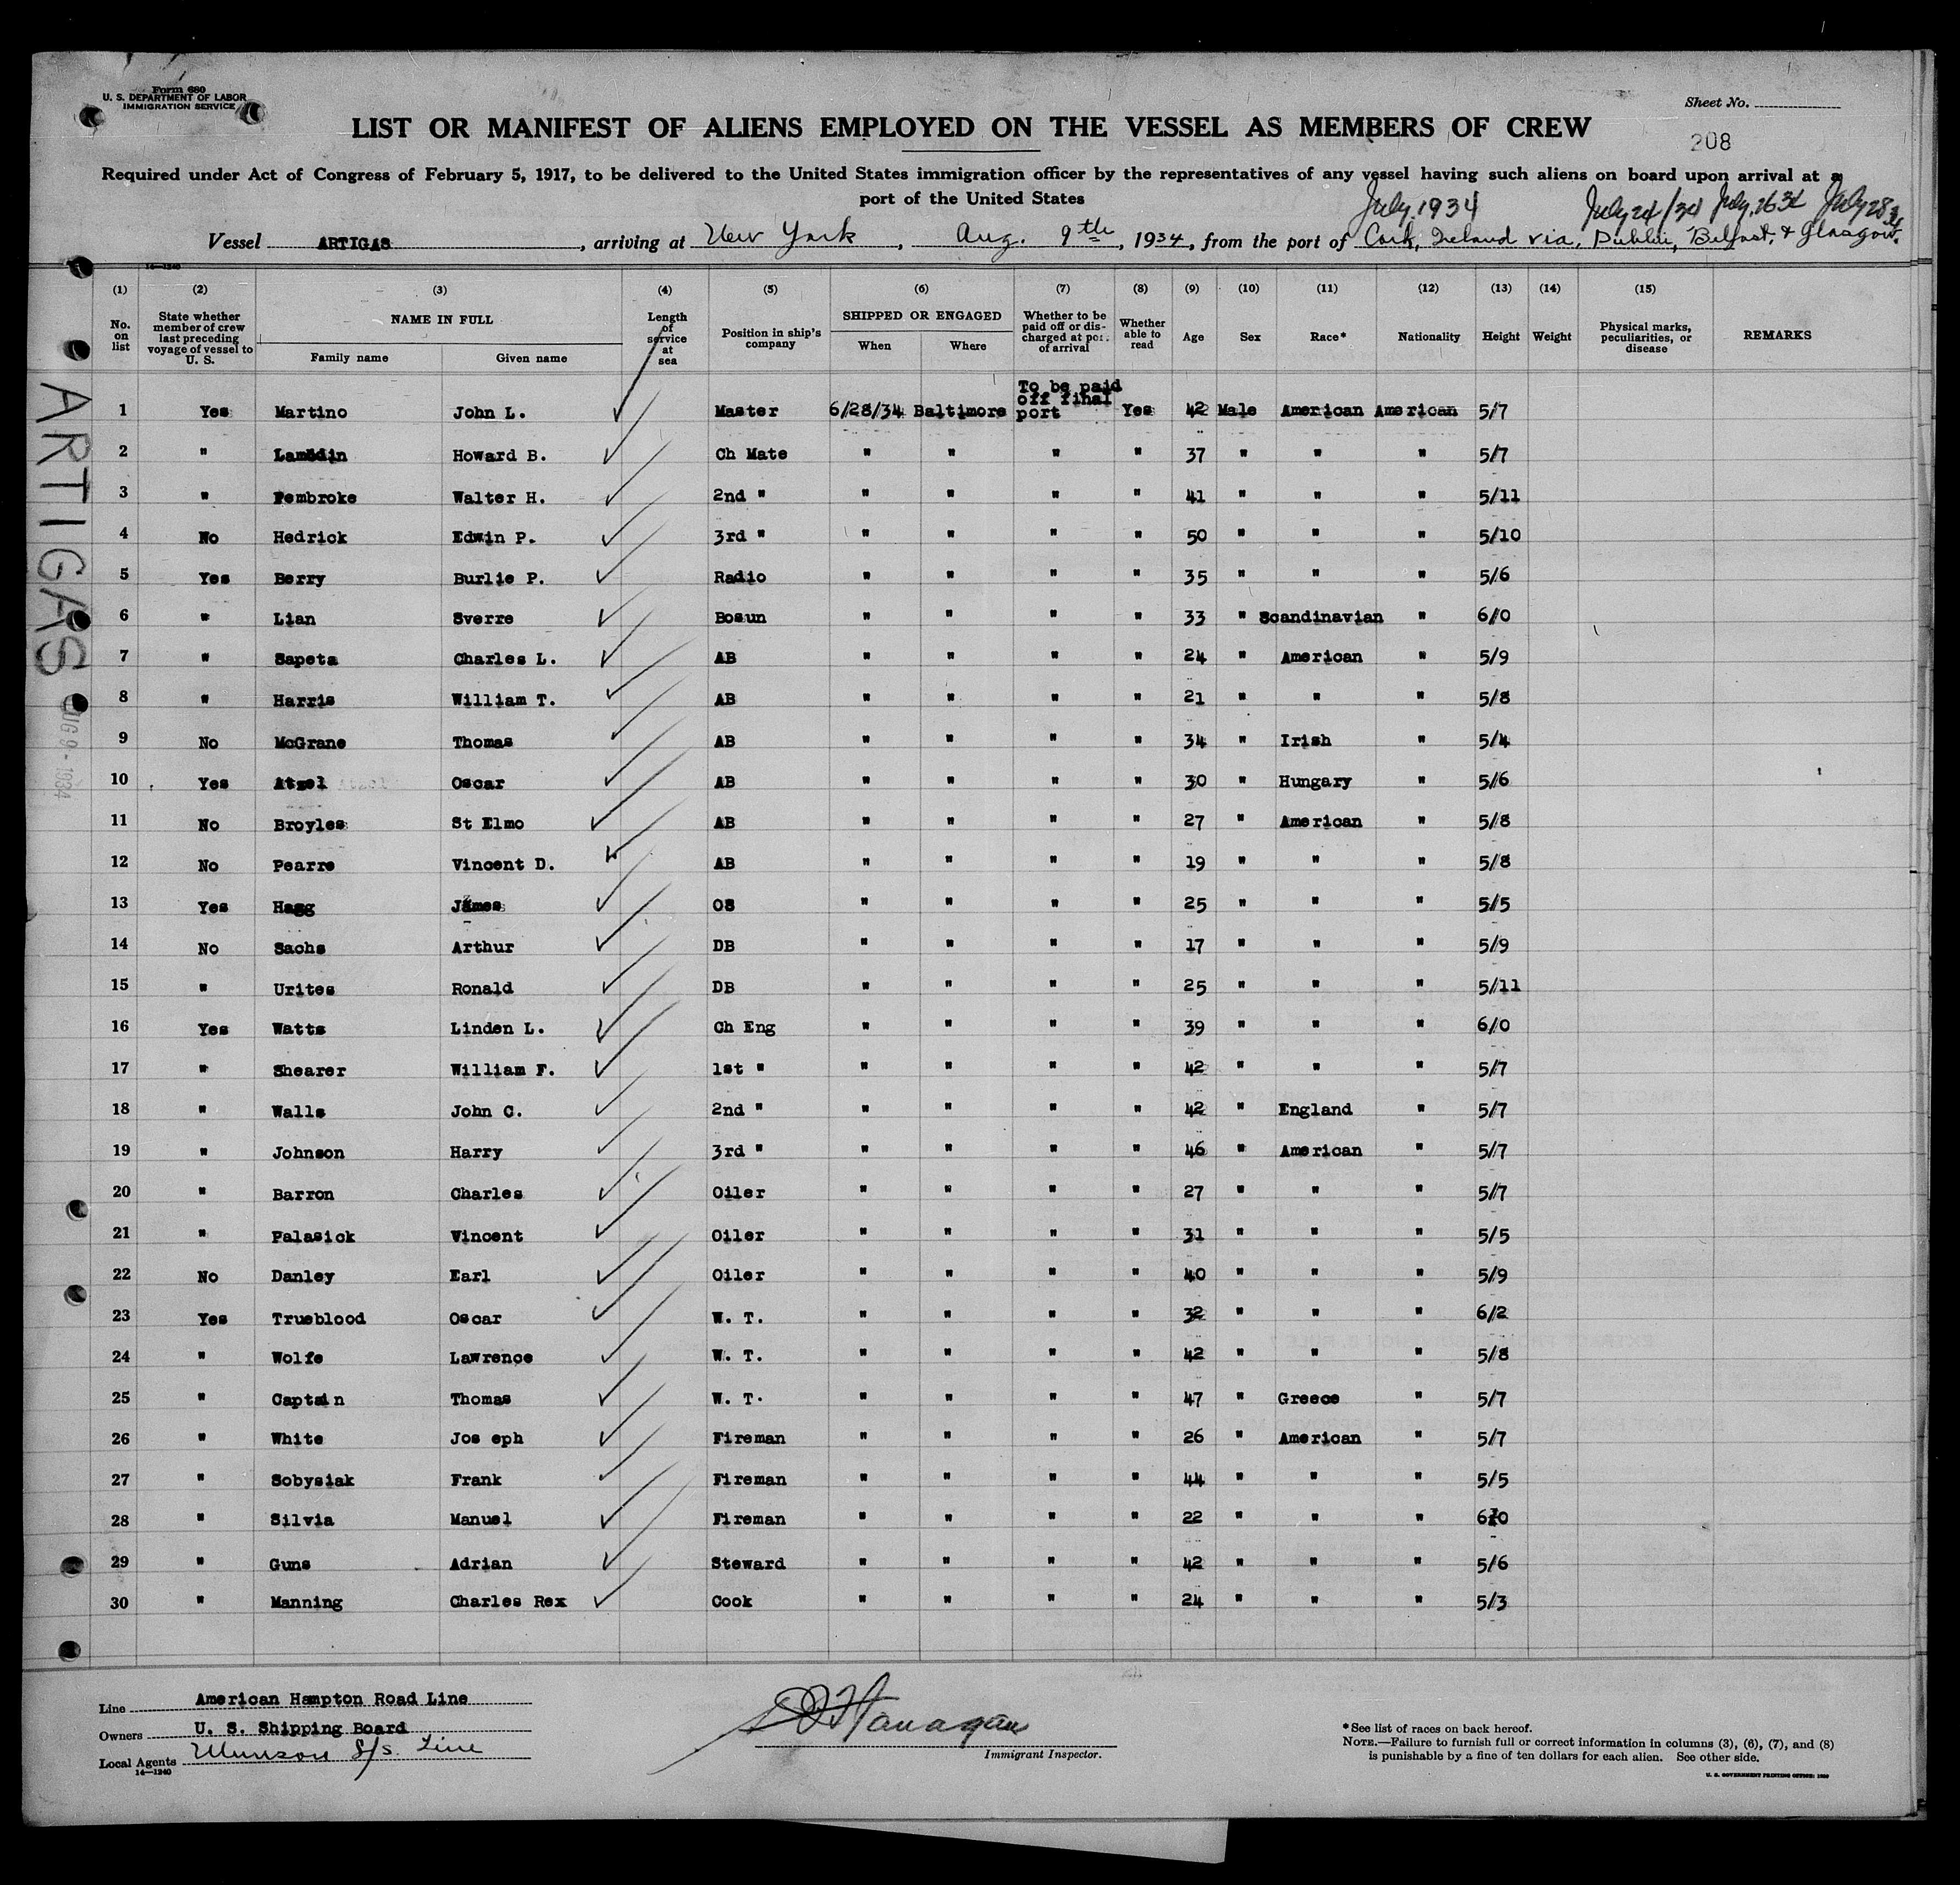 Form 680
U. S. DEPARTMENT OF LABOR
IMMIGRATION SERVICE
Sheet No.
208
LIST OR MANIFEST OF ALIENS EMPLOYED ON THE VESSEL AS MEMBERS OF CREW
Required under Act of Congress of February 5, 1917, to be delivered to the United States immigration officer by the representatives of any vessel having such aliens on board upon arrival at a
port of the United States
July. 1934 July 24/34 July. 26 34 July 28 34
Vessel ARTIGAS, arriving at New York, Aug. 9th, 1934, from the port of Cork, Ireland via, Dublin, Belfast, & Glasgow.
14—1240
(1) (2) (3) (4) (5) (6) (7) (8) (9) (10) (11) (12) (13) (14) (15)
No. on list State whether member of crew last preceding voyage of vessel to U. S. NAME IN FULL Family name Given name Length of service at sea Position in ship's company SHIPPED OR ENGAGED When Where Whether to be paid off or discharged at port of arrival Whether able to read Age Sex Race* Nationality Height Weight Physical marks, peculiarities, or disease REMARKS
1 Yes Martino John L. Master 6/28/34 Baltimore To be paid off final port Yes 42 Male American American 5/7
2 " Howard B. Ch Mate " " " " 37 " " " 5/7
3 " Pembroke Walter H. 2nd " " " " " 41 " " " 5/11
4 No Hedrick Edwin P. 3rd " " " " " 50 " " " 5/10
5 Yes Berry Burlie P. Radio " " " " 35 " " " 5/6
6 " Lian Sverre Bosun " " " " 33 " Scandinavian " 6/0
7 " Sapeta Charles L. AB " " " " 24 " American " 5/9
8 " Harris William T. AB " " " " 21 " " " 5/8
9 No McGrane Thomas AB " " " " 34 " Irish " 5/4
10 Yes Atzel Oscar AB " " " " 30 " Hungary " 5/6
11 No Broyles St Elmo AB " " " " 27 " American " 5/8
12 No Pearre Vincent D. AB " " " " 19 " " " 5/8
13 Yes Hagg James OS " " " " 25 " " " 5/5
14 No Sachs Arthur DB " " " " 17 " " " 5/9
15 " Urites Ronald DB " " " " 25 " " " 5/11
16 Yes Watts Linden L. Ch Eng " " " " 39 " " " 6/0
17 " Shearer William F. 1st " " " " " 42 " " " 5/7
18 " Walls John C. 2nd " " " " " 42 " England " 5/7
19 " Johnson Harry 3rd " " " " " 46 " American " 5/7
20 " Barron Charles Oiler " " " " 27 " " " 5/7
21 " Palasick Vincent Oiler " " " " 31 " " " 5/5
22 No Danley Earl Oiler " " " " 40 " " " 5/9
23 Yes Trueblood Oscar W. T. " " " " 32 " " " 6/2
24 " Wolfe Lawrence W. T. " " " " 42 " " " 5/8
25 " Captain Thomas W. T. " " " " 47 " Greece " 5/7
26 " White Jos eph Fireman " " " " 26 " American " 5/7
27 " Sobysiak Frank Fireman " " " " 44 " " " 5/5
28 " Silvia Manuel Fireman " " " " 22 " " "
29 " Guns Adrian Steward " " " " 42 " " " 5/6
30 " Manning Charles Rex Cook " " " " 24 " " " 5/3
ARTIGAS
AUG 9 - 1934
Line American Hampton Road Line
Owners U. S. Shipping Board
Local Agents Munson S/S. Line
14—1240
Flanagan
Immigrant Inspector.
*See list of races on back hereof.
NOTE.—Failure to furnish full or correct information in columns (3), (6), (7), and (8)
is punishable by a fine of ten dollars for each alien. See other side.
U. S. GOVERNMENT PRINTING OFFICE: 1930